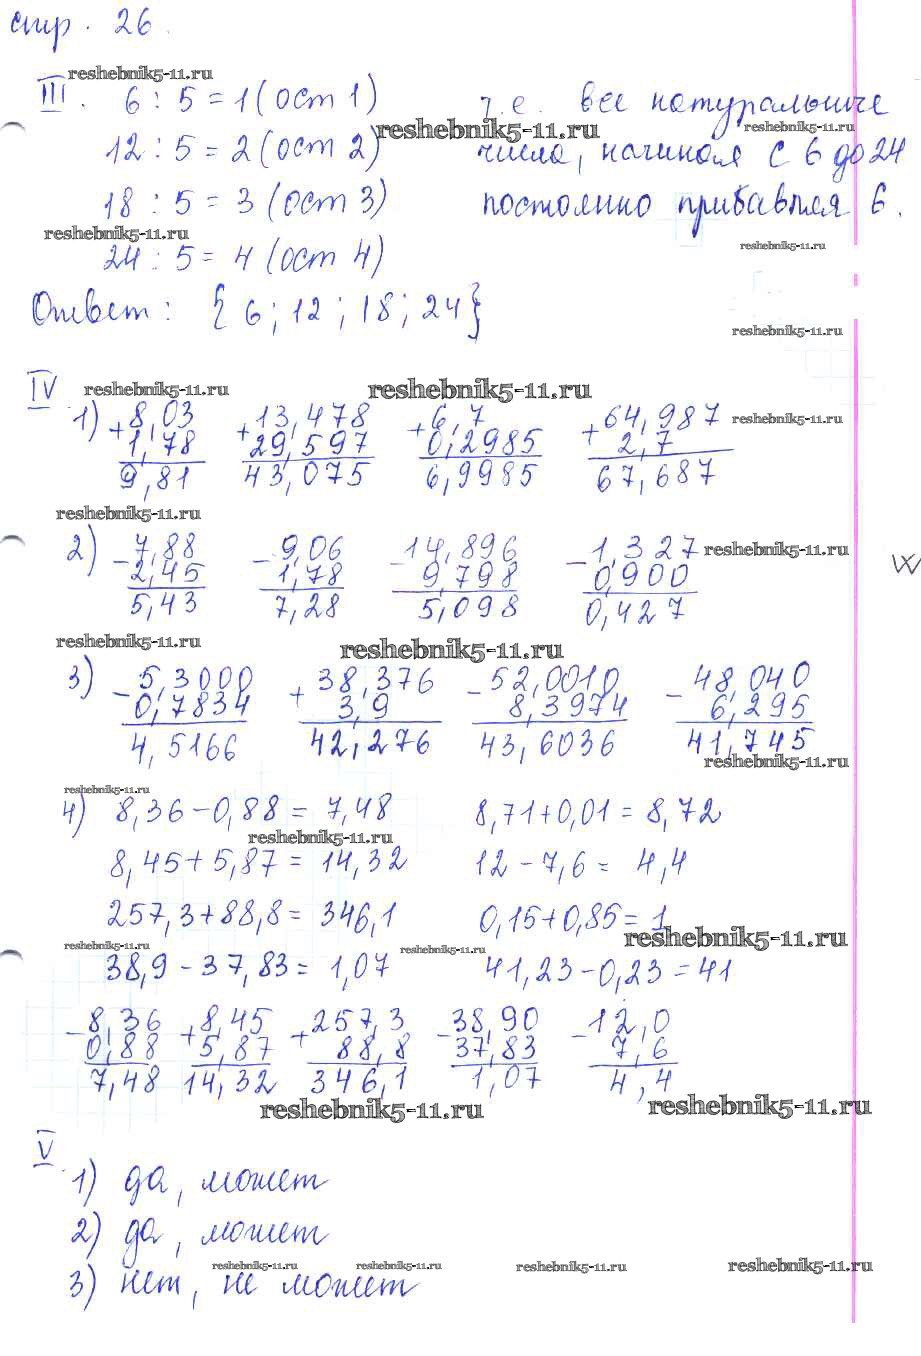 стр. 26.
reshebnik5-11.ru
III. 6 : 5 = 1 (ост 1) т.е. все натуральные
reshebnik5-11.ru reshebnik5-11.ru
12 : 5 = 2 (ост 2) числа, начиная с 6 до 24
18 : 5 = 3 (ост 3) постоянно прибавляя 6.
reshebnik5-11.ru reshebnik5-11.ru
24 : 5 = 4 (ост 4)
Ответ: {6; 12; 18; 24}
reshebnik5-11.ru
IV reshebnik5-11.ru reshebnik5-11.ru
1) +8,03 +13,478 +6,7 +64,987 reshebnik5-11.ru
1,78 29,597 0,2985 2,7
9,81 43,075 6,9985 67,687
reshebnik5-11.ru
2) -7,88 -9,06 -14,896 -1,327 reshebnik5-11.ru
2,45 1,78 9,798 0,900
5,43 7,28 5,098 0,427
reshebnik5-11.ru reshebnik5-11.ru
3) -5,3000 +38,376 -52,0010 -48,040
0,7834 3,9 8,3974 6,295
4,5166 42,276 43,6036 41,745
reshebnik5-11.ru
reshebnik5-11.ru
4) 8,36-0,88 = 7,48 8,71+0,01 = 8,72
reshebnik5-11.ru
8,45+5,87 = 14,32 12-7,6 = 4,4
257,3+88,8 = 346,1 0,15+0,85 = 1
reshebnik5-11.ru reshebnik5-11.ru reshebnik5-11.ru
38,9-37,83 = 1,07 41,23-0,23 = 41
-8,36 +8,45 +257,3 -38,90 -12,0
0,88 5,87 88,8 37,83 7,6
7,48 14,32 346,1 1,07 4,4
reshebnik5-11.ru reshebnik5-11.ru
V
1) да, может
2) да, может
reshebnik5-11.ru reshebnik5-11.ru reshebnik5-11.ru reshebnik5-11.ru
3) нет, не может